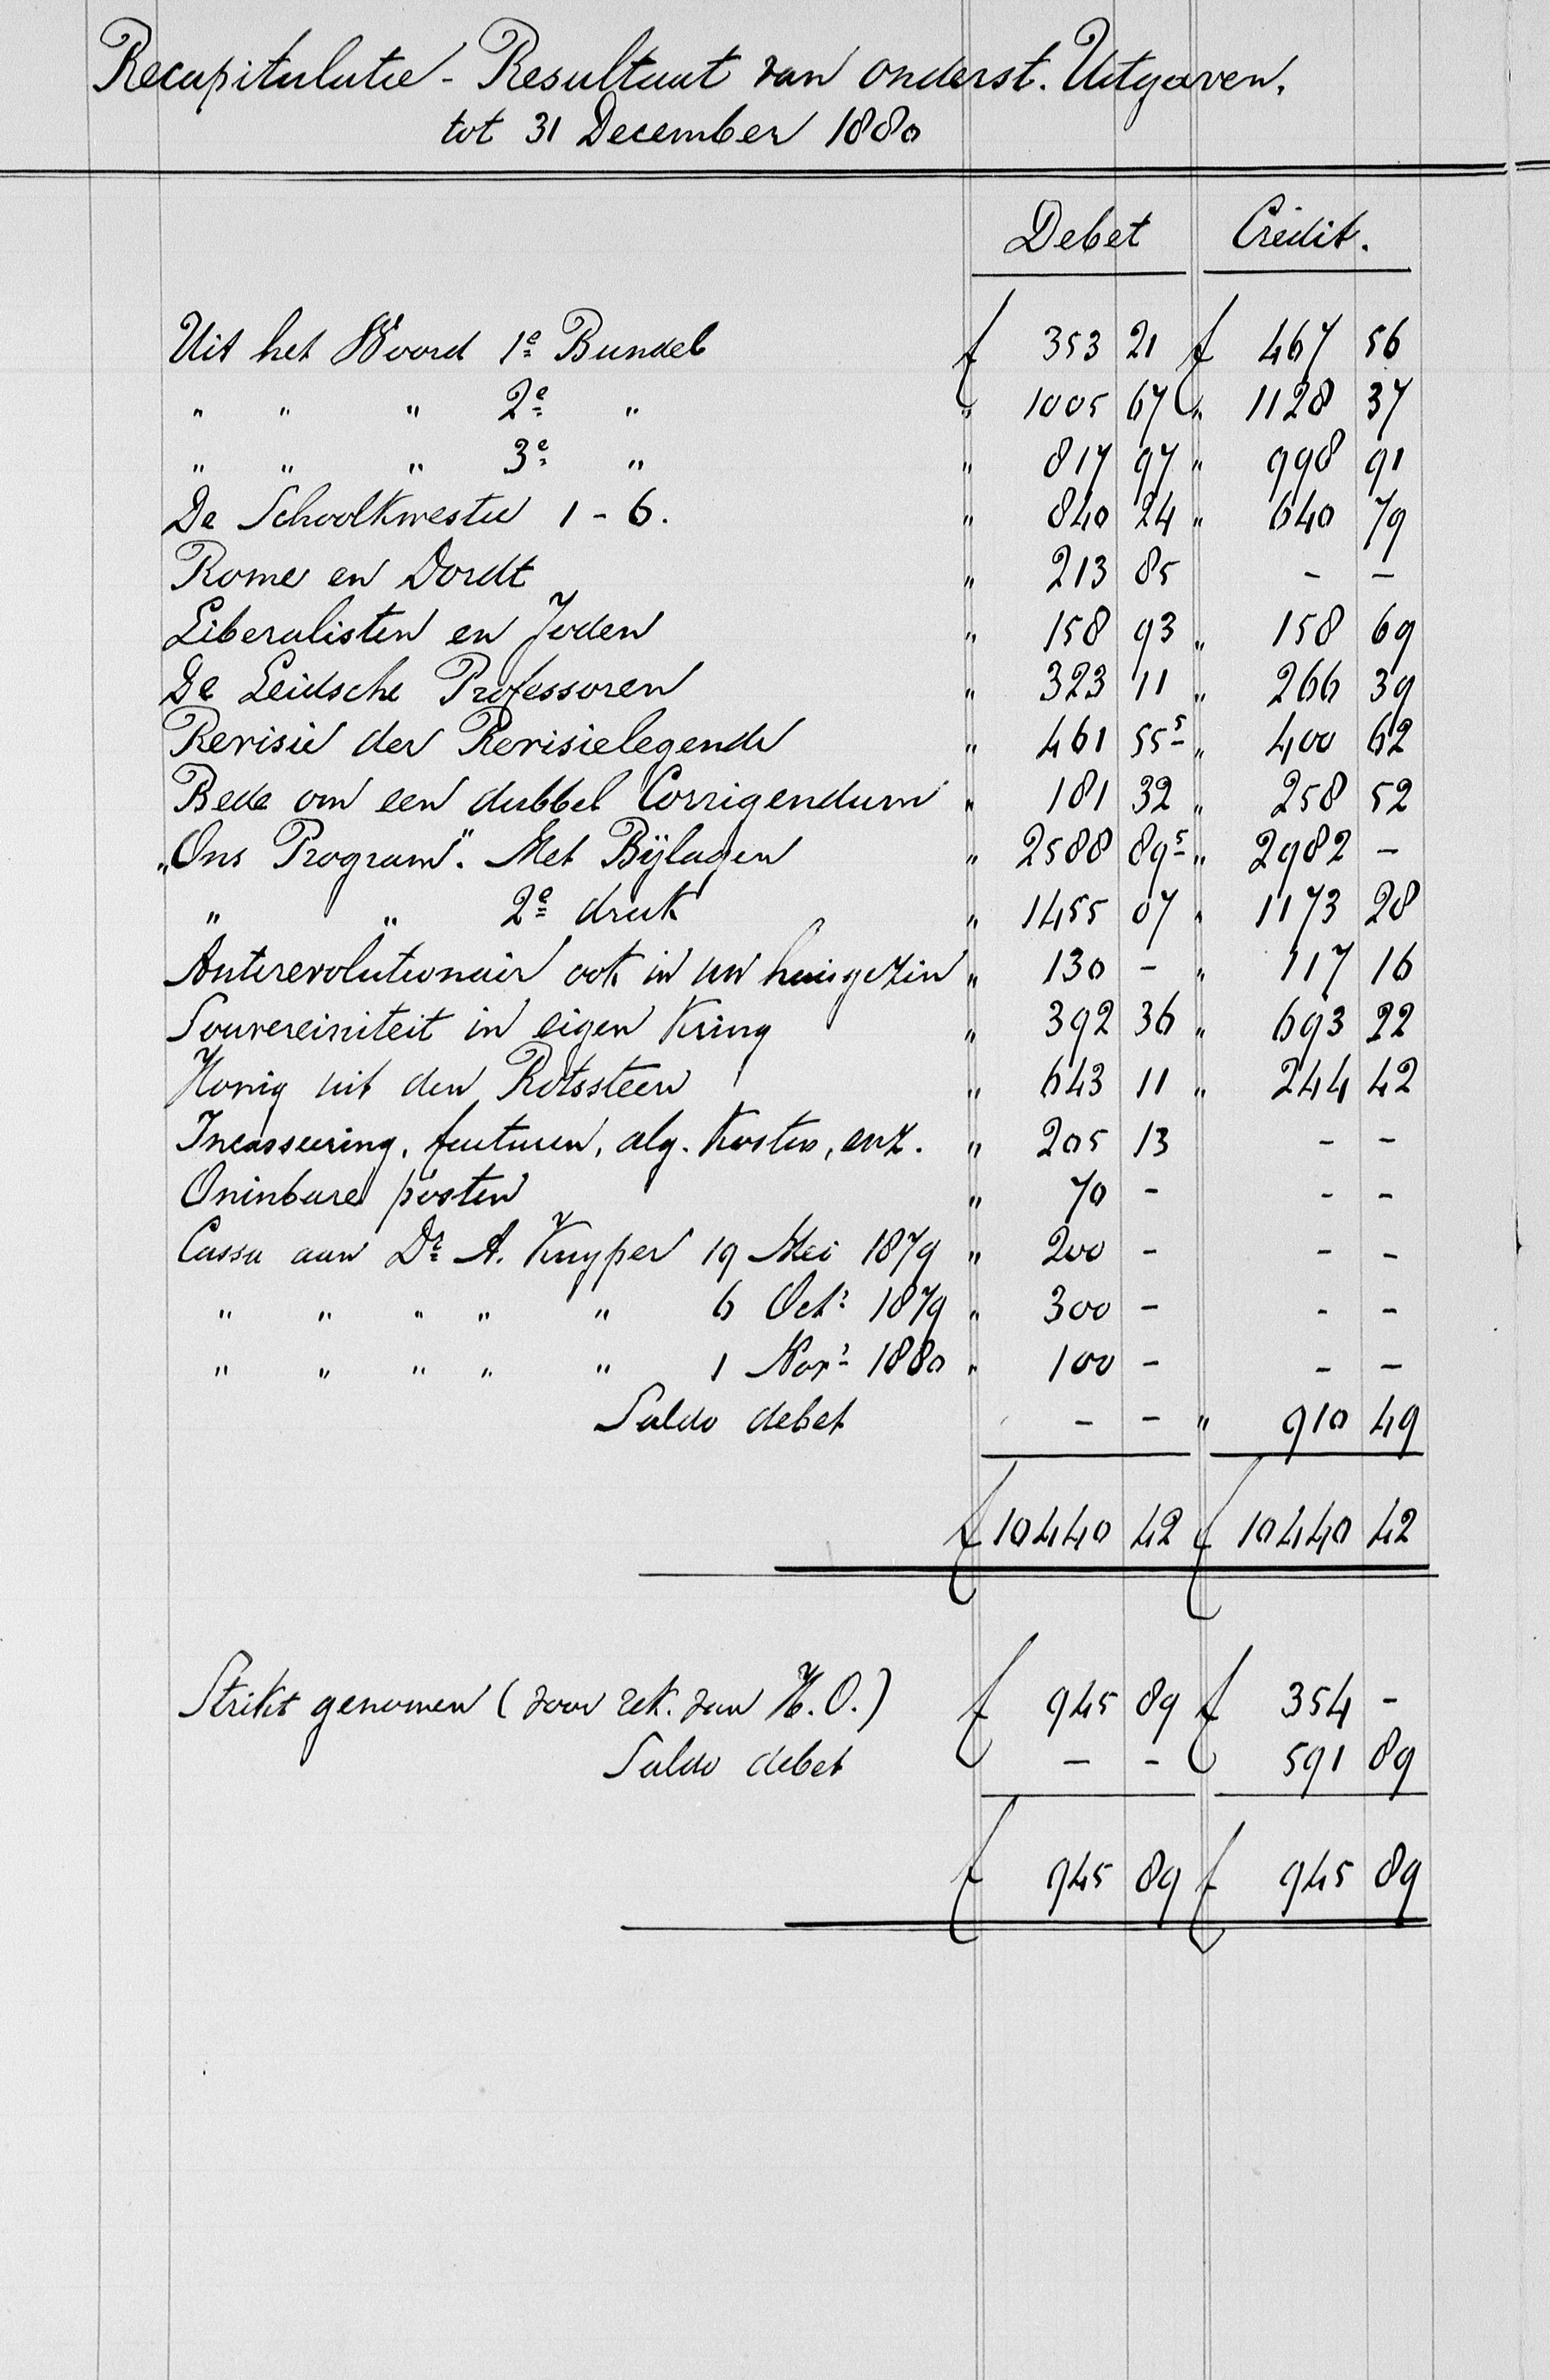 Recapitulatie - Resultaat van onderst. Uitgaven,
tot 31 December 1880
Debet Credit.
Uit het Woord 1e Bundel f 353 21 f 467 56
" " " 2e " " 1005 67 " 1128 37
" " " 3e " " 817 97 " 998 91
De Schoolkwestie 1 - 6. " 840 24 " 640 79
Rome en Dordt " 213 85 - -
Liberalisten en Joden " 158 93 " 158 69
De Leidsche Professoren " 323 11 " 266 39
Revisie der Revisielegende " 461 55⁵ " 400 62
Bede om een dubbel Corrigendum " 181 32 " 258 52
„Ons Program". Met Bijlagen " 2588 89⁵ " 2982 -
" " 2e druk " 1455 07 " 1173 28
Antirevolutionair ook in uw huisgezin " 130 - " 117 16
Souvereiniteit in eigen Kring " 392 36 " 693 22
Honig uit den Rotssteen " 643 11 " 244 42
Incasseering, facturen, alg. Kosten, enz. " 205 13 - -
Oninbare posten " 70 - - -
Cassa aan Dr A. Kuyper 19 Mei 1879 " 200 - - -
" " " " " 6 Octr 1879 " 300 - - -
" " " " " 1 Novr 1880 " 100 - - -
Saldo debet - - " 910 49
f 10440 42 f 10440 42
Strikt genomen (voor rek. van H. O.) f 945 89 f 354 -
Saldo debet - - 591 89
f 945 89 f 945 89